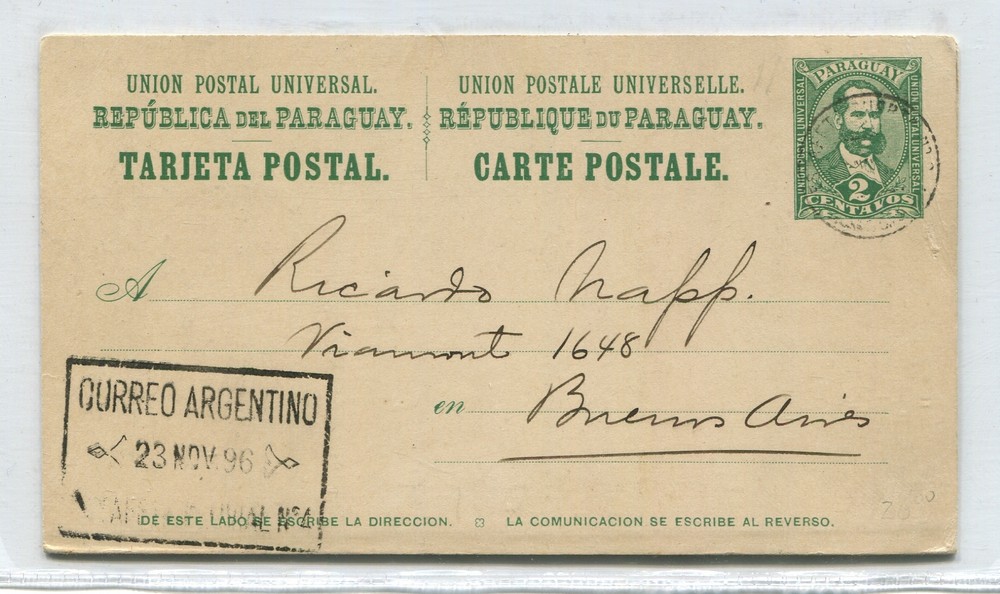 UNION POSTAL UNIVERSAL.
REPÚBLICA DEL PARAGUAY.
TARJETA POSTAL.
UNION POSTALE UNIVERSELLE.
RÉPUBLIQUE DU PARAGUAY.
CARTE POSTALE.
PARAGUAY
UNION POSTAL UNIVERSAL
UNION POSTAL UNIVERSAL
2
CENTAVOS
A Ricardo Napp.
Viamont 1648
en Buenos Aires
CORREO ARGENTINO
23 NOV. 96
Nº4
DE ESTE LADO SE ESCRIBE LA DIRECCION. LA COMUNICACION SE ESCRIBE AL REVERSO.